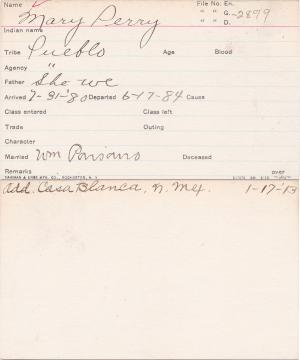 Name Mary Perry File No: En.
" " G. -2899
" " D.
Indian name
Tribe Pueblo Age Blood
Agency "
Father She we
Arrived 7-31-'80 Departed 6-17-84 Cause
Class entered Class left
Trade Outing
Character
Married Wm Parsons Deceased
Remarks over
Add. Casa Blanca, N. Mex. 1-17-'13